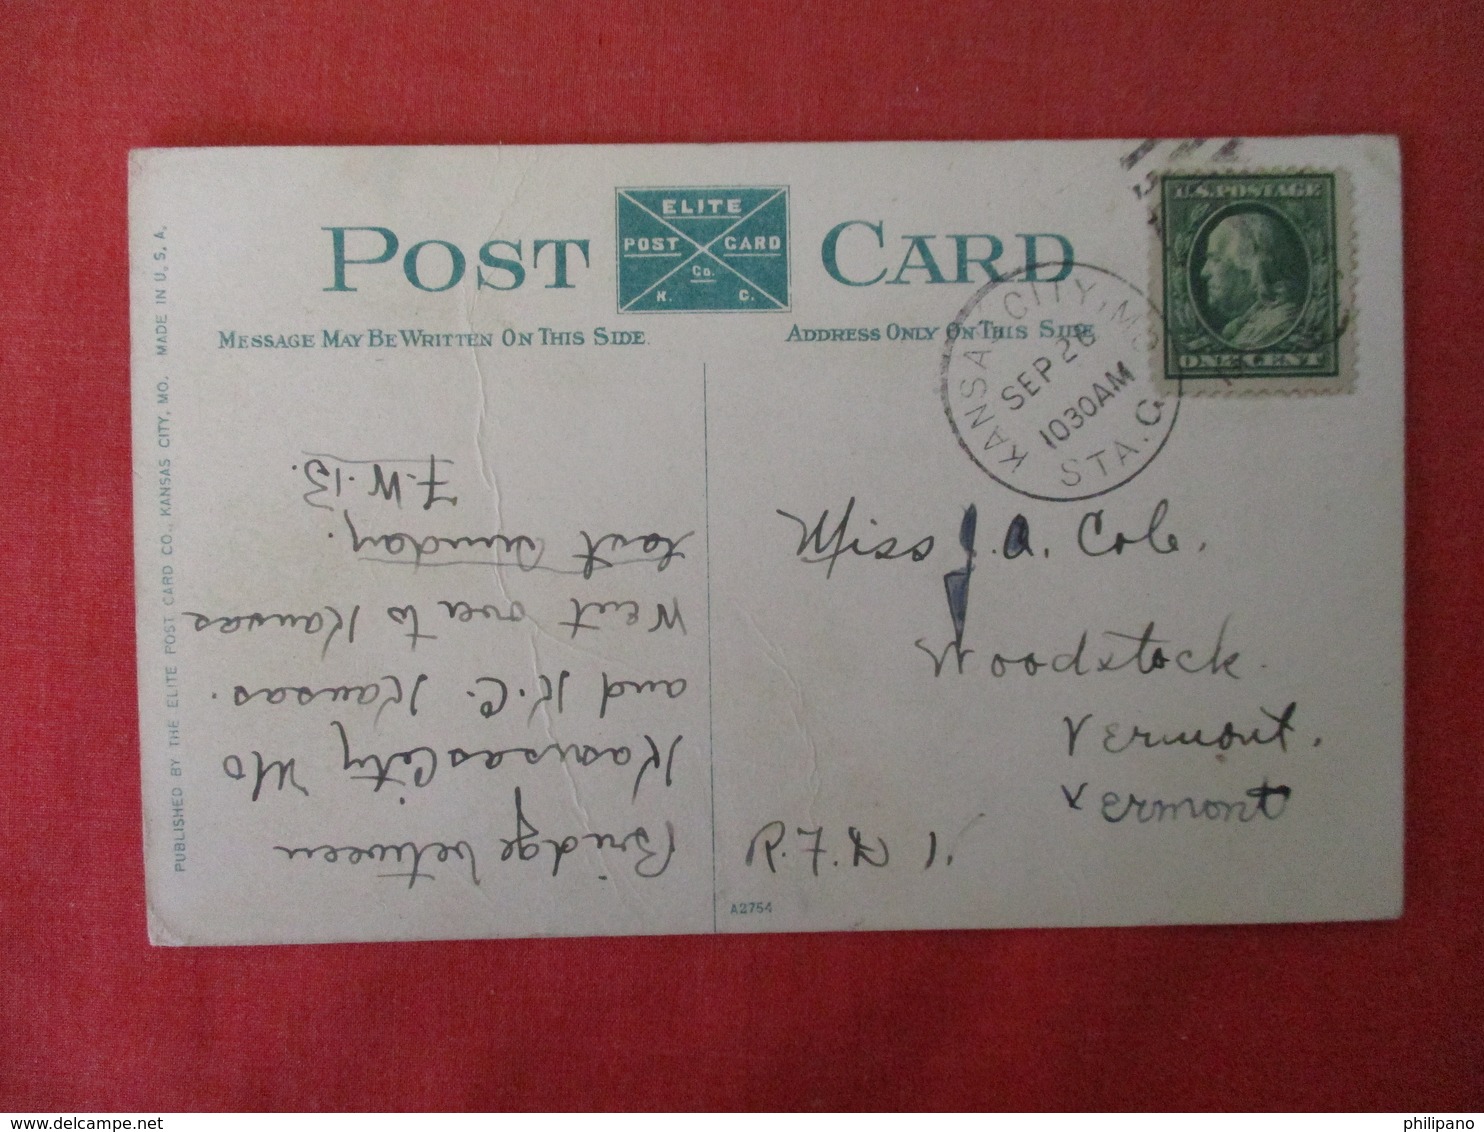 POST CARD
ELITE
POST CARD
Co.
K. C.
MESSAGE MAY BE WRITTEN ON THIS SIDE.
ADDRESS ONLY ON THIS SIDE
U.S. POSTAGE
ONE CENT
KANSAS CITY, MO.
SEP 26
1030 AM
STA. C
Bridge between
Kansas City Mo
and K.C. Kansas.
Went over to Kansas
last Sunday.
F.W.B.
Miss J. A. Cole.
Woodstock.
Vermont.
Vermont
R.F.D 1.
A2754
PUBLISHED BY THE ELITE POST CARD CO., KANSAS CITY, MO. MADE IN U. S. A.
delcampe.net
philipano